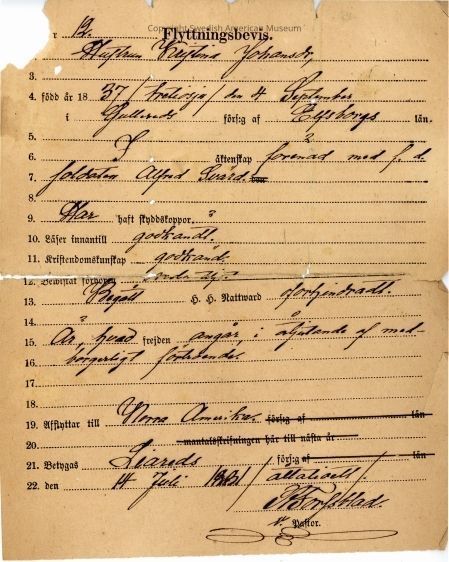 Copyright Swedish American Museum
r 12.
Flyttningsbevis.
Hustrun Christina Johansdr,
3.
4. född år 1837 / trettiosju / den 4 September
i Gullereds förs:g af Elfsborgs län.
5.
6. I äktenskap förenad med f. d.
7. soldaten Alfred Svärd.
8.
9. Har haft skyddskoppor.
10. Läser innantill godkändt.
11. Kristendomskunskap godkänd.
12. Bewistat förhören
13. Begått H. H. Nattward oförhindradt.
14.
15. Är, hvad frejden angår, i åtnjutande af med-
16. borgerligt förtroende.
17.
18.
19. Afflyttar till Norra Amerika. förs:g af län
20. mantalsskrifningen här till nästa år
21. Betygas Liareds förs:g af län
22. den 14 Juli 188
Pastor.